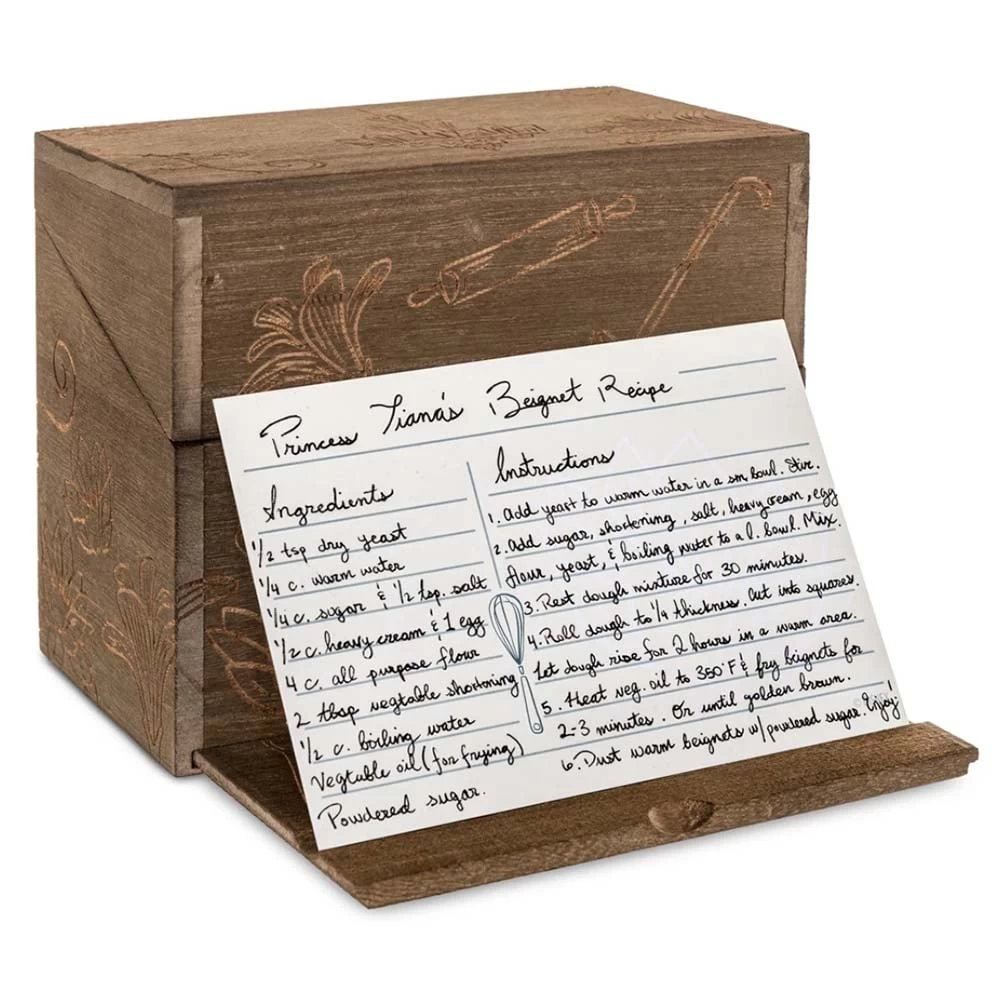 Princess Tiana's Beignet Recipe
Ingredients
1/2 tsp dry yeast
1/4 c. warm water
1/4 c. sugar & 1/2 tsp. salt
1/2 c. heavy cream & 1 egg
4 c. all purpose flour
2 tbsp vegtable shortening
1/2 c. boiling water
Vegtable oil (for frying)
Powdered sugar.
Instructions
1. add yeast to warm water in a sm bowl. Stir.
2. add sugar, shortening, salt, heavy cream, egg
flour, yeast, & boiling water to a l. bowl. Mix.
3. Rest dough mixture for 30 minutes.
4. Roll dough to 1/4 thickness. Cut into squares.
Let dough rise for 2 hours in a warm area.
5. Heat veg. oil to 350°F & fry beignets for
2-3 minutes. Or until golden brown.
6. Dust warm beignets w/ powdered sugar. Enjoy!